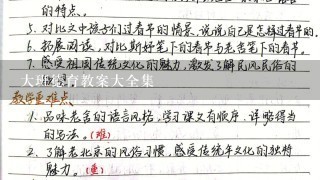 的特点。
5. 对比文中孩子们过春节的情景,说说自己是怎样过春节的。
6. 拓展阅读,对比斯好笔下的春节与老舍笔下的春节。
7. 感受祖国传统文化的魅力,激发了解民风民俗的
大班德育教案大全集
教学重难点、
1. 品味老舍的语言风格,学习课文有顺序、详略得当
的写法。(难)
2. 了解老北京的风俗习惯,感受传统年文化的独特
魅力。(重)